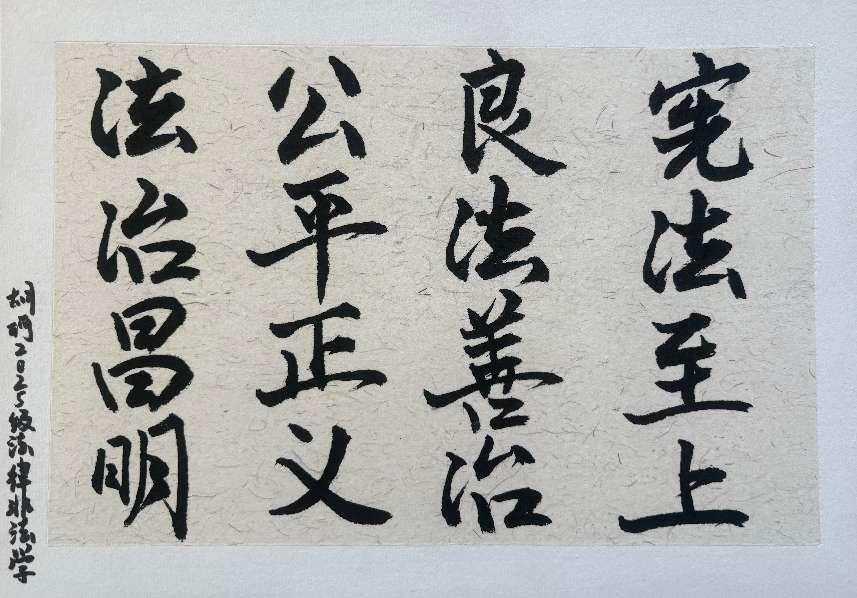 宪法至上
良法善治
公平正义
法治昌明
2025级法律非法学